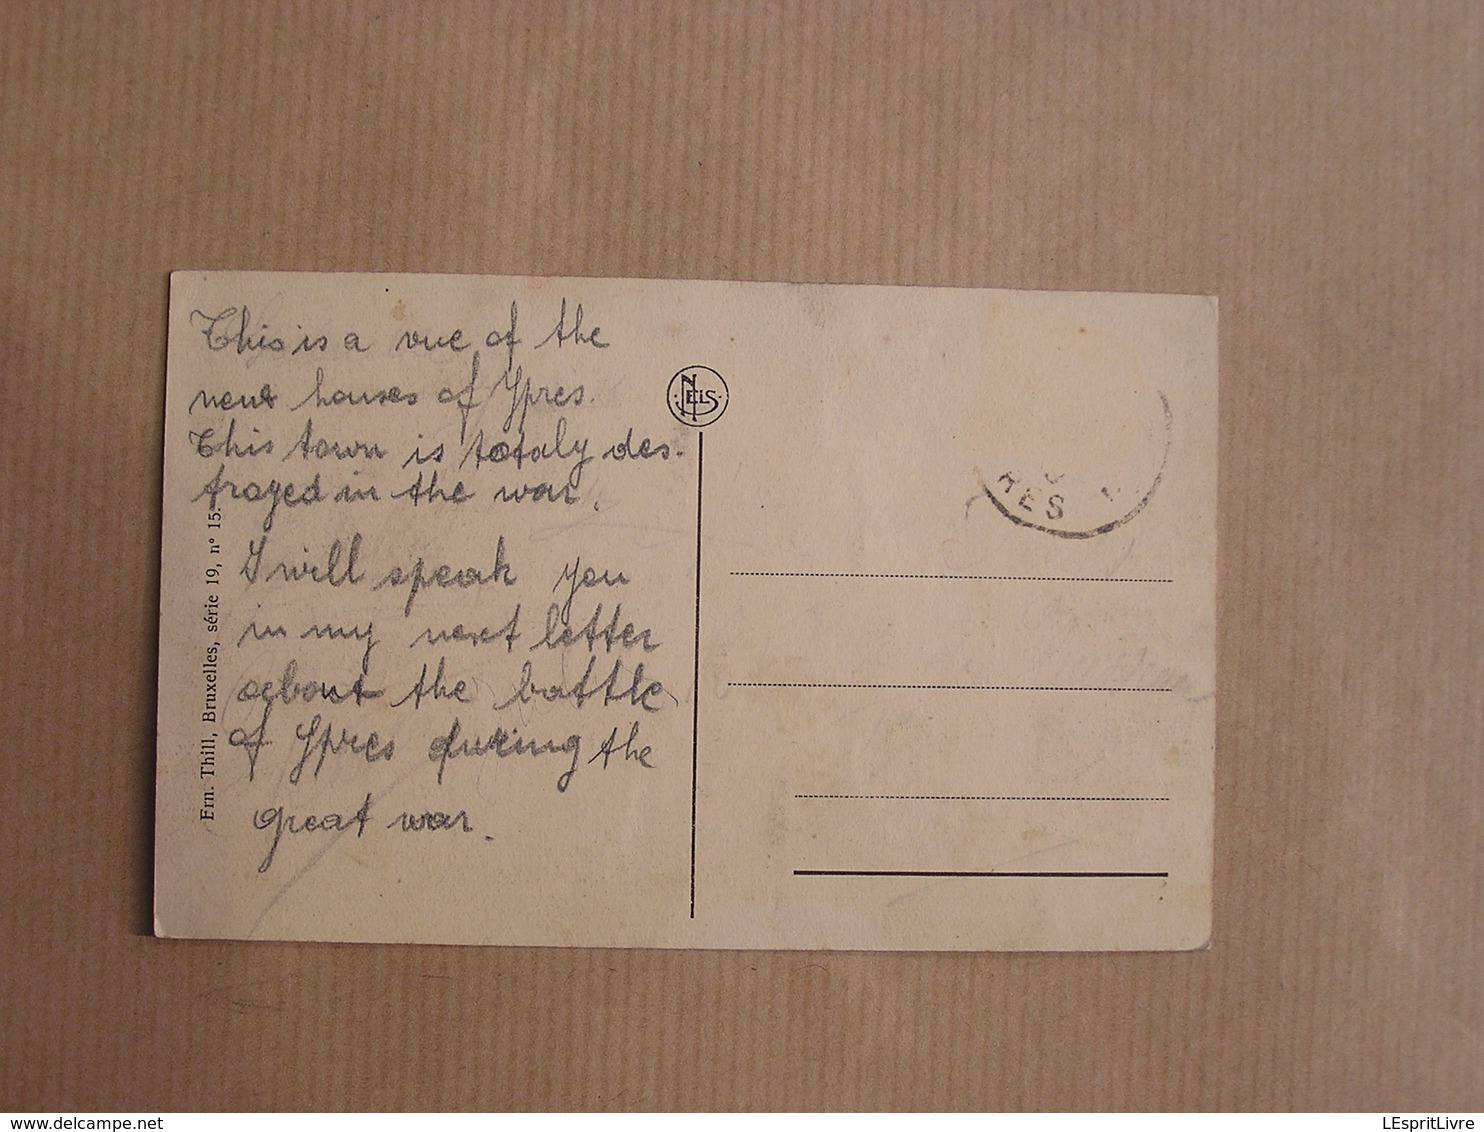 This is a vue of the
new houses of Ypres.
This town is totaly des-
troyed in the war.
I will speak you
in my next letter
about the battle
of Ypres during the
great war.
Ern. Thill, Bruxelles, série 19, n° 15.
NELS
RES
LEspritLivre